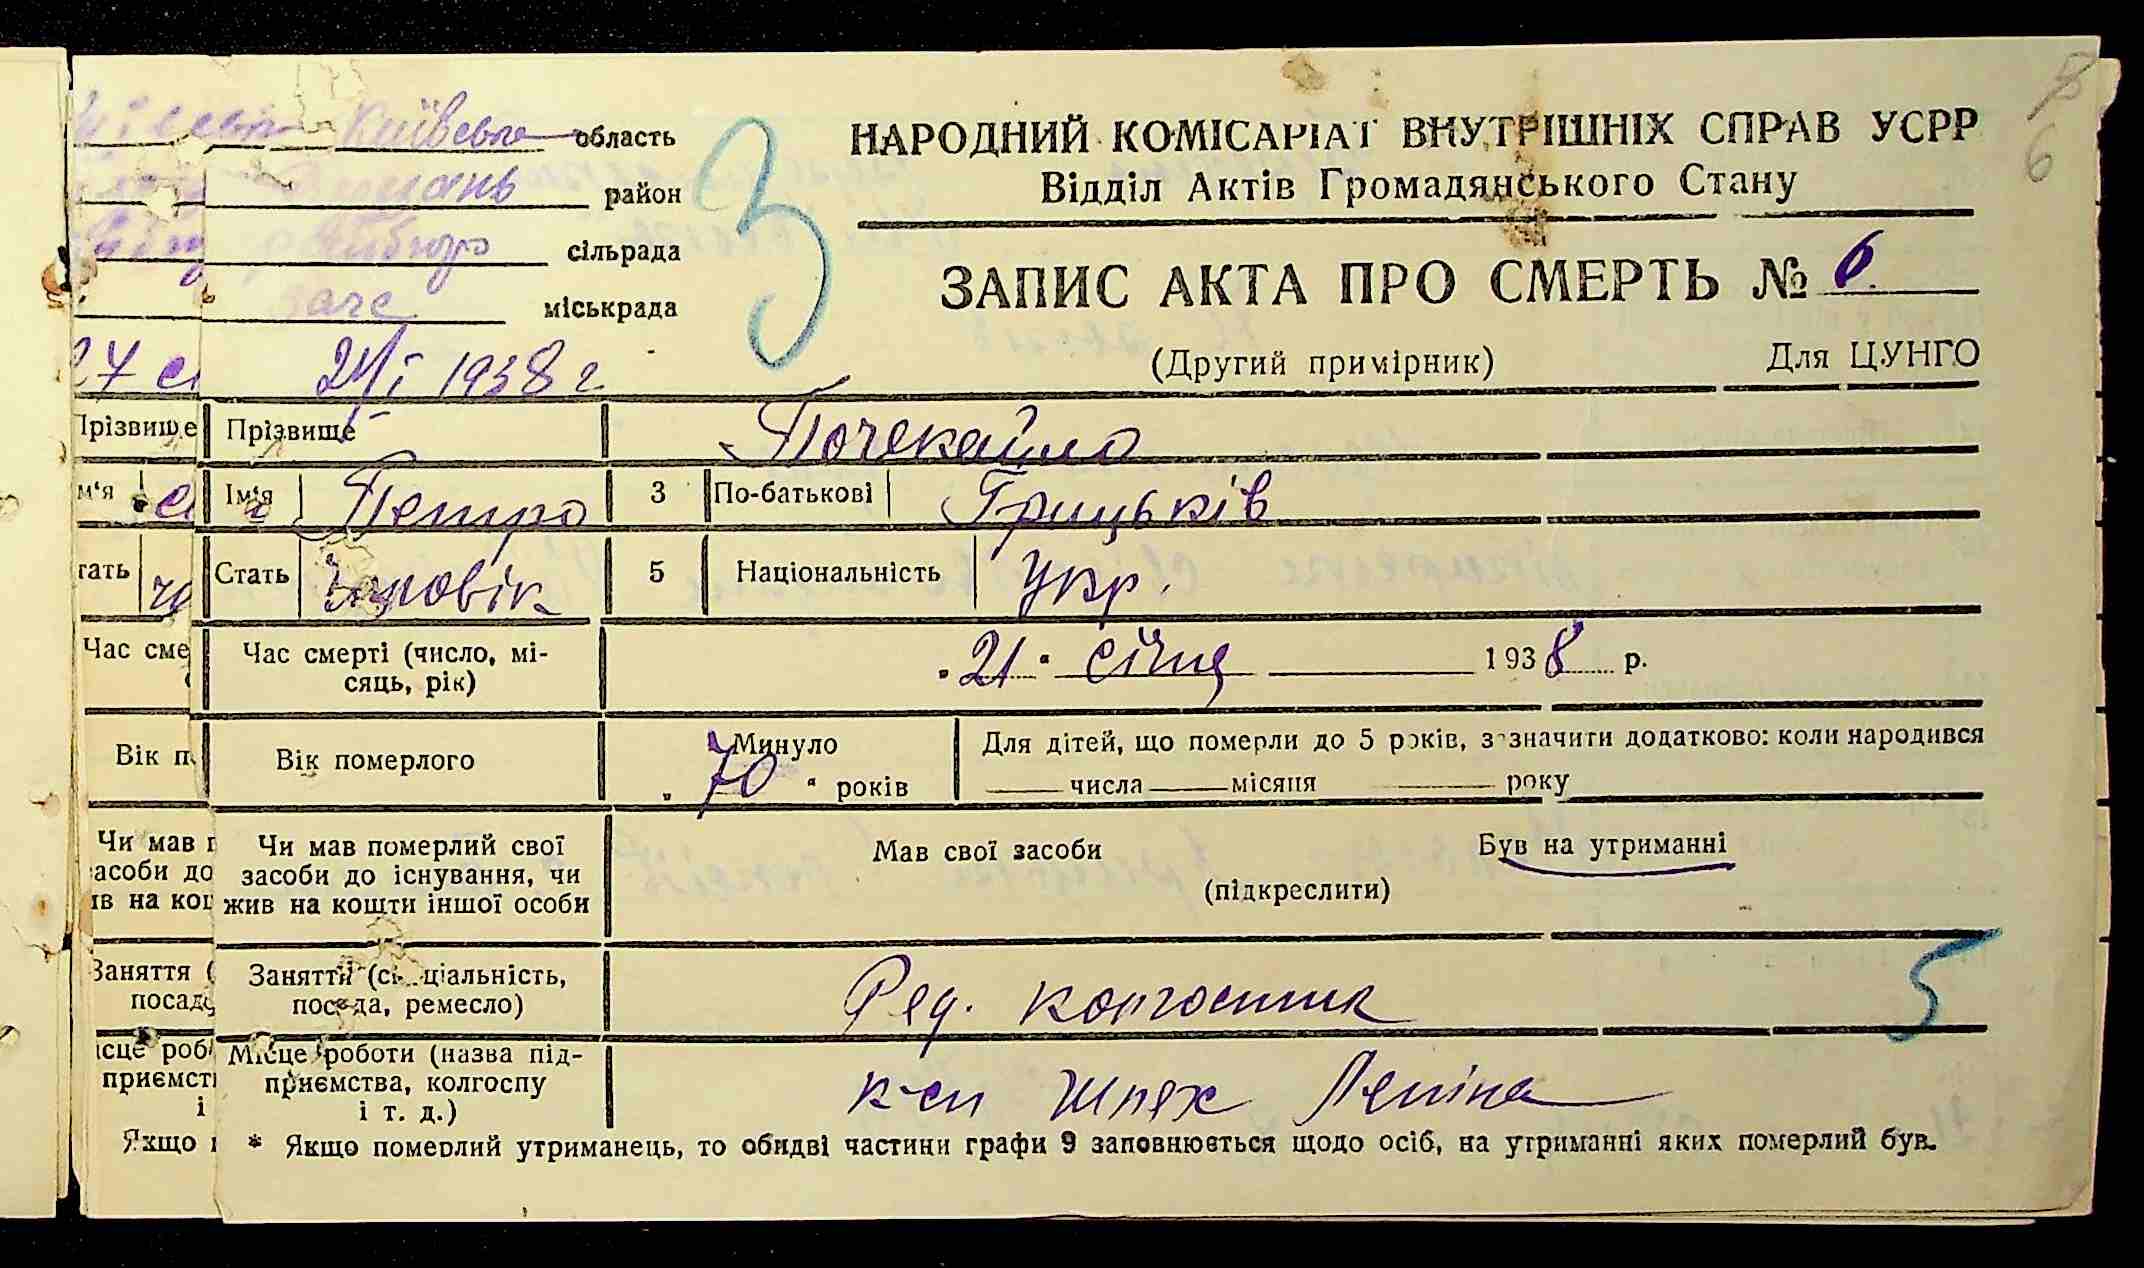 Київська область
район
райбюро сільрада
загс міськрада
21/I 1938 г.
3
НАРОДНИЙ КОМІСАРІАТ ВНУТРІШНІХ СПРАВ УСРР
Відділ Актів Громадянського Стану
6
ЗАПИС АКТА ПРО СМЕРТЬ № 6
(Другий примірник) Для ЦУНГО
Прізвище Почекайло
Ім'я Петро 3 По-батькові Грицьків
Стать Чоловік 5 Національність Укр.
Час смерті (число, мі-
сяць, рік)
„21" січня 1938 р.
Вік померлого
Минуло
„70" років
Для дітей, що померли до 5 років, зазначити додатково: коли народився
числа місяця року
Чи мав померлий свої
засоби до існування, чи
жив на кошти іншої особи
Мав свої засоби Був на утриманні
(підкреслити)
Заняття (спеціальність,
посада, ремесло)
Ряд. колгоспник
5
Місце роботи (назва під-
приємства, колгоспу
і т. д.)
к-сп Шлях Леніна
* Якщо померлий утриманець, то обидві частини графи 9 заповнюється щодо осіб, на утриманні яких померлий був.